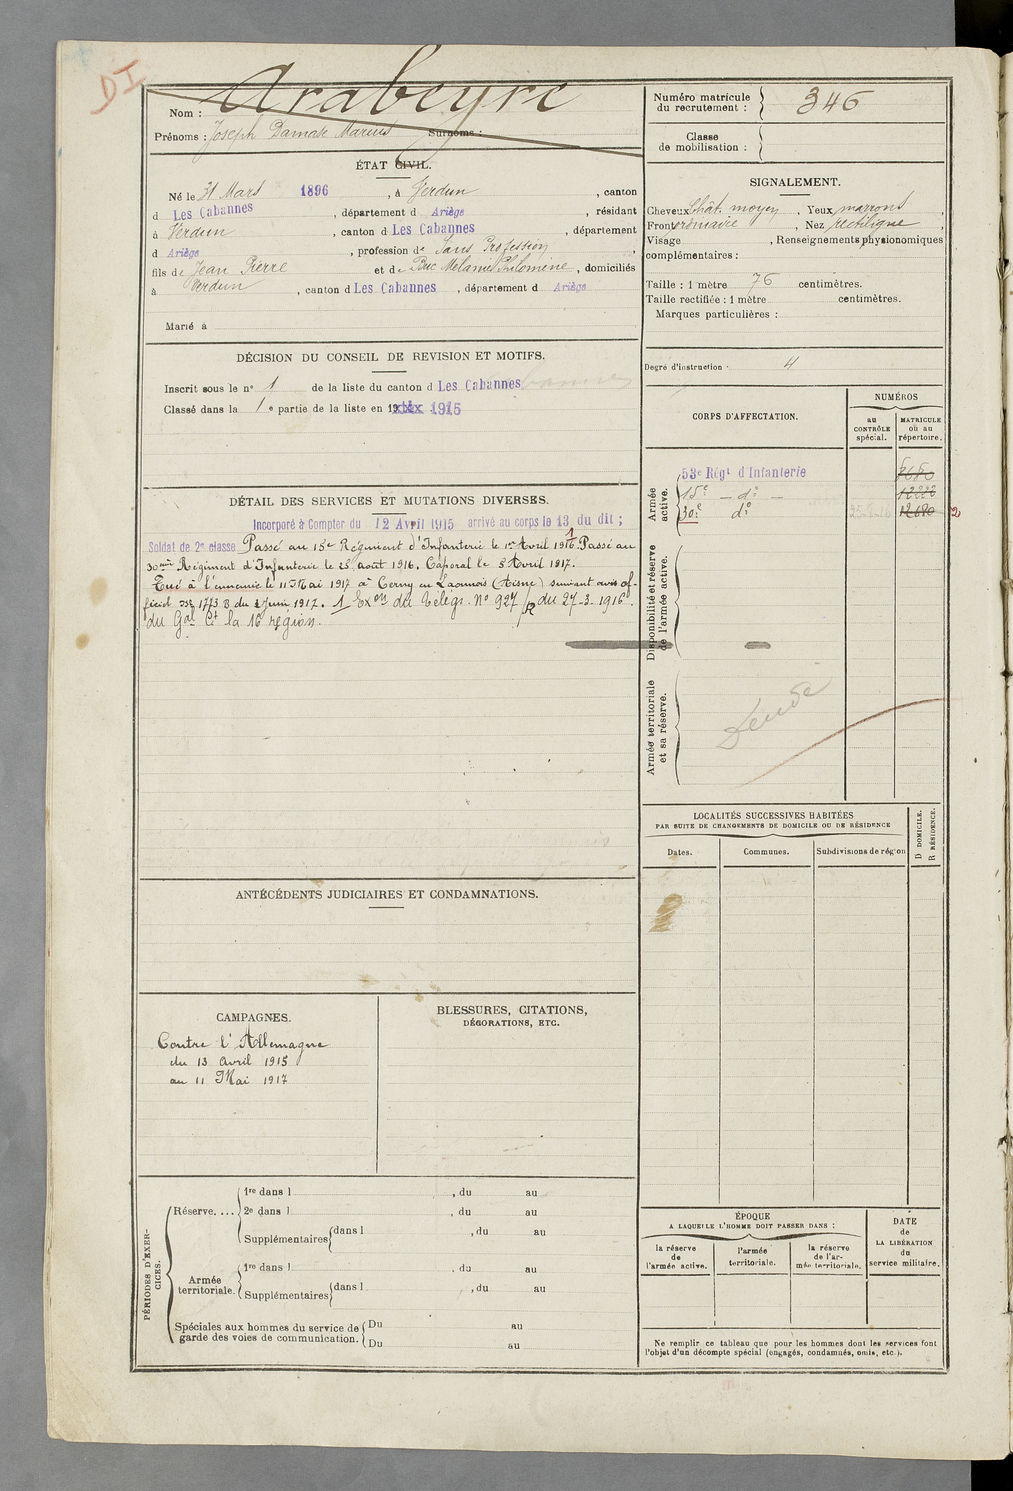 DI
Nom : Arabeyre
Prénoms : Joseph Damase Marius Surnoms :
Numéro matricule du recrutement : 346
Classe de mobilisation :
ÉTAT CIVIL.
Né le 31 Mars 1896, à Verdun, canton
d Les Cabannes, département d Ariège, résidant
à Verdun, canton d Les Cabannes, département
d Ariège, profession de Sans Profession
fils de Jean Pierre et de Buc Mélanie Philomène, domiciliés
à Verdun, canton d Les Cabannes, département d Ariège
Marié à
SIGNALEMENT.
Cheveux Chât. moyen, Yeux marrons,
Front ordinaire, Nez rectiligne,
Visage, Renseignements physionomiques
complémentaires :
Taille : 1 mètre 76 centimètres.
Taille rectifiée : 1 mètre centimètres.
Marques particulières :
Degré d'instruction : 4
DÉCISION DU CONSEIL DE REVISION ET MOTIFS.
Inscrit sous le n° 1 de la liste du canton d Les Cabannes
Classé dans la 1e partie de la liste en 19 1915
DÉTAIL DES SERVICES ET MUTATIONS DIVERSES.
Incorporé à Compter du 12 Avril 1915 arrivé au corps le 13 du dit ;
Soldat de 2e classe Passé au 15e Régiment d'Infanterie le 1er Avril 1916. 1 Passé au
30ème Régiment d'Infanterie le 25 août 1916. Caporal le 8 Avril 1917.
Tué à l'ennemi le 11 Mai 1917 à Cerny en Laonnois (Aisne) suivant avis of-
ficiel 1773 B du 2 Juin 1917. 1 Exon du télégr. N° 927/R du 27-3-1916
du Gal Ct la 16 région.
CORPS D'AFFECTATION.
NUMÉROS
au CONTRÔLE spécial.
MATRICULE ou au répertoire.
Armée active.
53e Régt d'Infanterie
15e — d° —
30e d° 12680 2
Disponibilité et réserve de l'armée active.
Armée territoriale et sa réserve.
LOCALITÉS SUCCESSIVES HABITÉES
PAR SUITE DE CHANGEMENTS DE DOMICILE OU DE RÉSIDENCE
Dates.
Communes.
Subdivisions de région
D DOMICILE.
R RÉSIDENCE.
ANTÉCÉDENTS JUDICIAIRES ET CONDAMNATIONS.
CAMPAGNES.
Contre l'Allemagne
du 13 Avril 1915
au 11 Mai 1917
BLESSURES, CITATIONS,
DÉCORATIONS, ETC.
PÉRIODES D'EXERCICES.
Réserve....
1re dans l , du au
2e dans l , du au
Supplémentaires dans l , du au
Armée territoriale.
1re dans l , du au
Supplémentaires dans l , du au
Spéciales aux hommes du service de garde des voies de communication.
Du au
Du au
ÉPOQUE
A LAQUELLE L'HOMME DOIT PASSER DANS :
la réserve de l'armée active.
l'armée territoriale.
la réserve de l'armée territoriale.
DATE
de
LA LIBÉRATION
du
service militaire.
Ne remplir ce tableau que pour les hommes dont les services font
l'objet d'un décompte spécial (engagés, condamnés, omis, etc.).